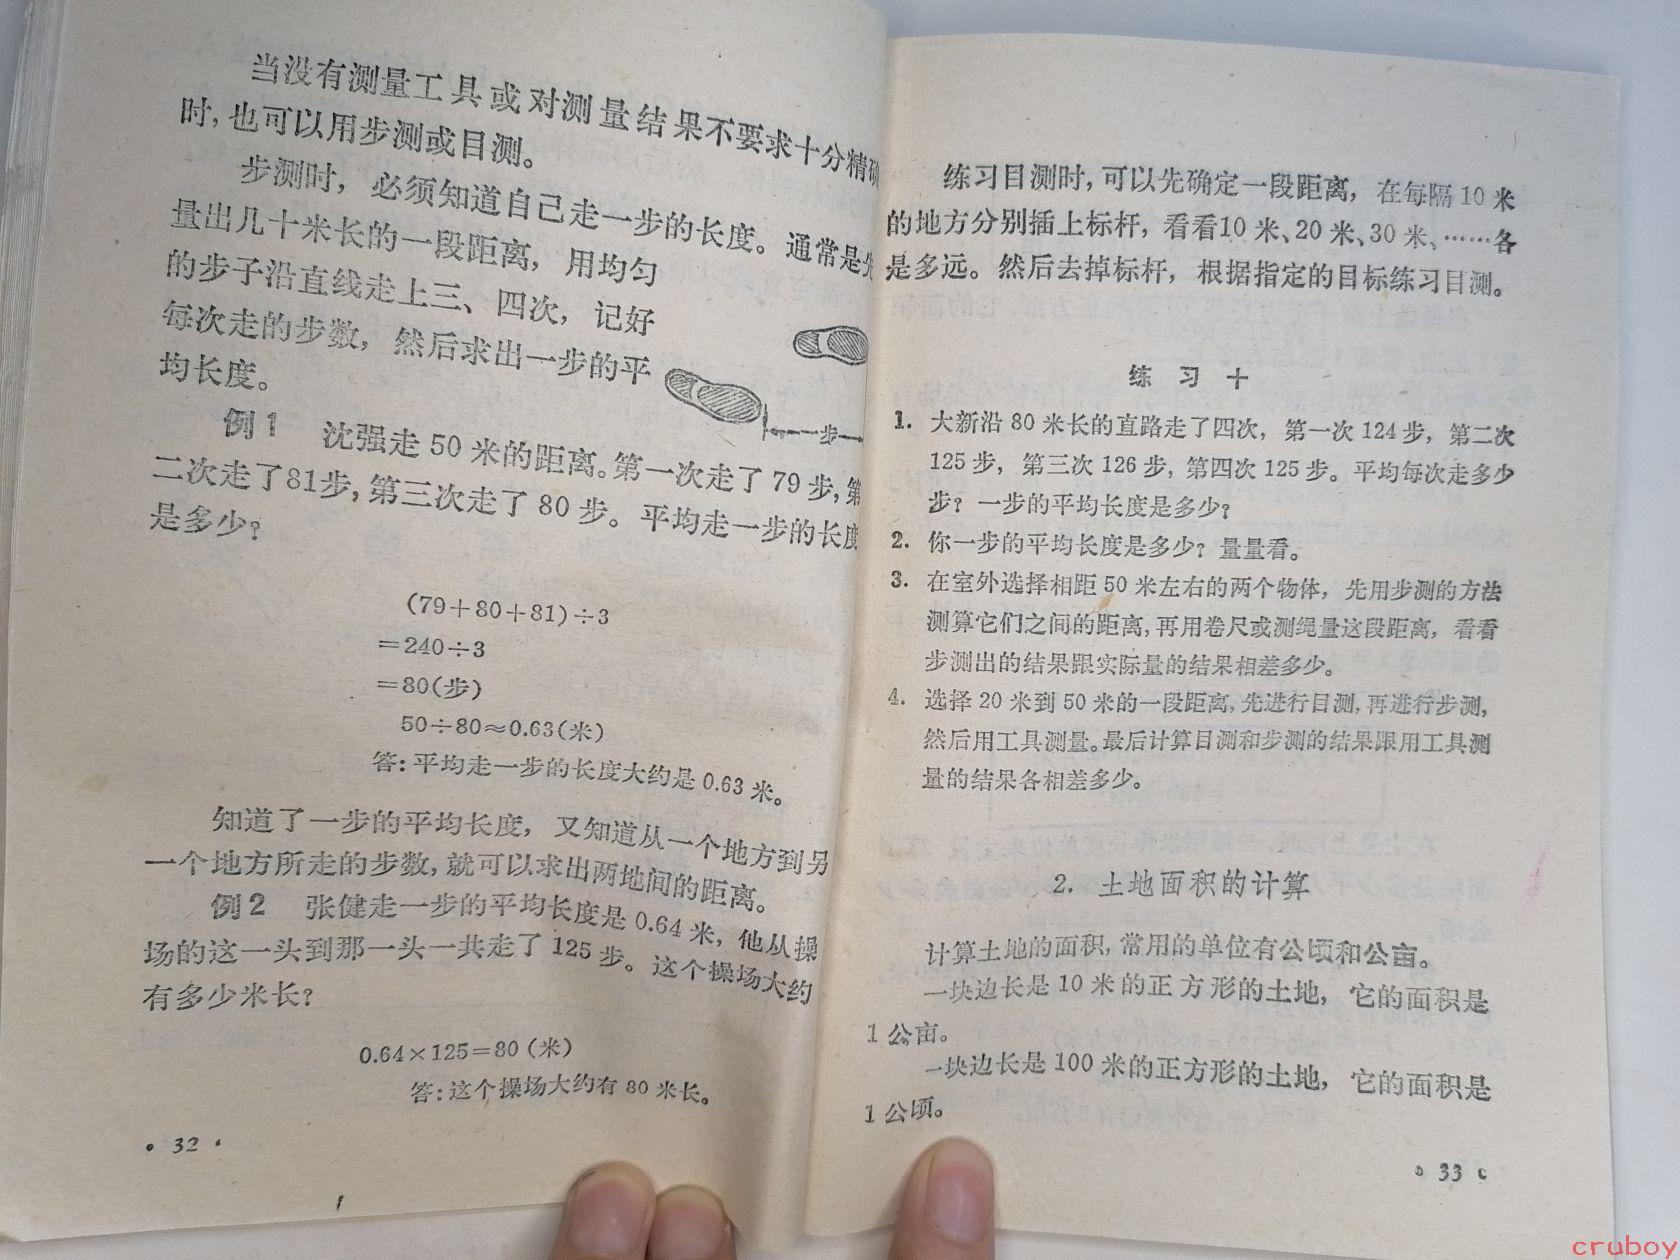 当没有测量工具或对测量结果不要求十分精确
时,也可以用步测或目测。
步测时，必须知道自己走一步的长度。通常是先
量出几十米长的一段距离，用均匀
的步子沿直线走上三、四次，记好
每次走的步数，然后求出一步的平
均长度。
一步
例1 沈强走 50 米的距离。第一次走了 79 步,第
二次走了81步,第三次走了 80 步。平均走一步的长度
是多少?
(79+80+81)÷3
=240÷3
=80(步)
50÷80≈0.63(米)
答:平均走一步的长度大约是 0.63 米。
知道了一步的平均长度，又知道从一个地方到另
一个地方所走的步数,就可以求出两地间的距离。
例2 张健走一步的平均长度是 0.64 米，他从操
场的这一头到那一头一共走了 125 步。这个操场大约
有多少米长?
0.64×125=80(米)
答:这个操场大约有 80 米长。
• 32 •
练习目测时,可以先确定一段距离，在每隔 10 米
的地方分别插上标杆，看看10 米、20 米、30 米、……各
是多远。然后去掉标杆，根据指定的目标练习目测。
练 习 十
1. 大新沿 80 米长的直路走了四次，第一次 124 步，第二次
125 步，第三次 126 步，第四次 125 步。平均每次走多少
步? 一步的平均长度是多少?
2. 你一步的平均长度是多少? 量量看。
3. 在室外选择相距 50 米左右的两个物体，先用步测的方法
测算它们之间的距离,再用卷尺或测绳量这段距离，看看
步测出的结果跟实际量的结果相差多少。
4. 选择 20 米到 50 米的一段距离,先进行目测,再进行步测,
然后用工具测量。最后计算目测和步测的结果跟用工具测
量的结果各相差多少。
2. 土地面积的计算
计算土地的面积,常用的单位有公顷和公亩。
一块边长是 10 米的正方形的土地，它的面积是
1 公亩。
一块边长是 100 米的正方形的土地，它的面积是
1 公顷。
• 33 •
cruboy